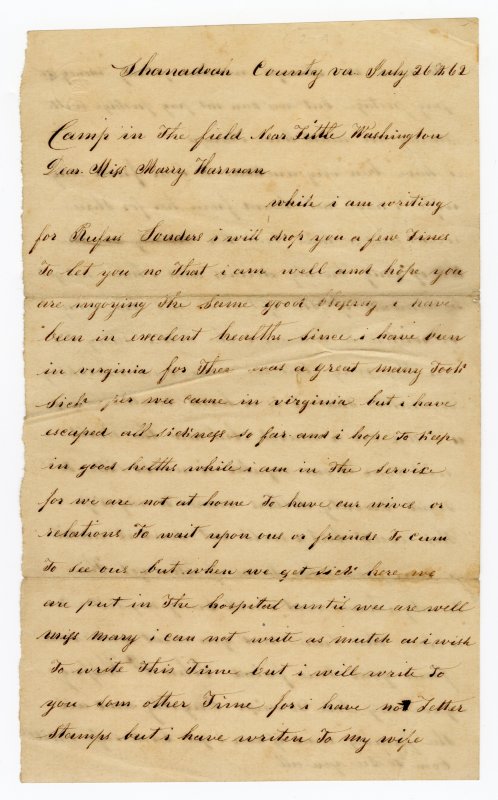 Shanadoah County va. July 26th 62
Camp in The field Near Little Washington
Dear. Miss. Marry Harman
while i am writing
for Rufus Souders i will drop you a few Lines
To let you no That i am well and hope you
are ingoying The Same good blessing i have
been in excelent healths since i have been
in virginia for Thee was a great many Took
Sick per wee came in virginia but i have
escaped all sickness so far and i hope To keep
in good helths while i am in The servixe
for we are not at home To have our wives or
relations To wait upon ous or freinds To cum
To see ous but when we get sick here we
are put in The hospital until wee are well
miss mary i can not write as mutch as i wish
To write This Time but i will write To
you som other Time for i have not Letter
Stamps but i have writen To my wife